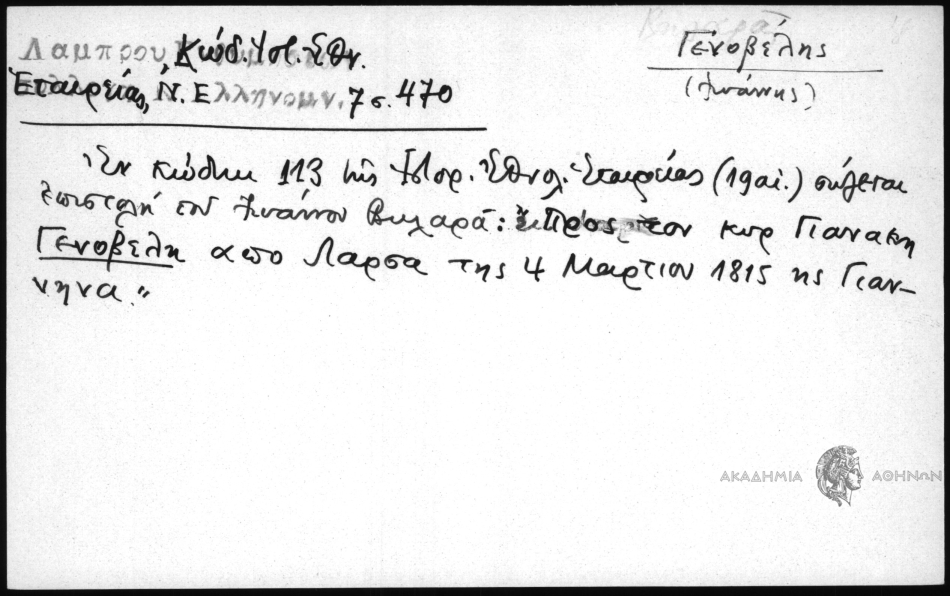 Βηλαρᾶ
Λάμπρου, Κώδ. Ἱστ. Ἐθν.
Ἑταιρείας, Ν. Ελληνομν. 7 σ. 470
Γενοβέλης
(Ἰωάννης)
Ἐν κώδικι 113 τῆς Ἱστορ. Ἐθνολ. Ἑταιρείας (19 αἰ.) σώζεται
ἐπιστολή τοῦ Ἰωάννου Βηλαρᾶ: "Προς τον κυρ Γιανακη
Γενοβελη απο Λαρσα της 4 Μαρτιου 1815 ης Γιαν-
νηνα."
ΑΚΑΔΗΜΙΑ ΑΘΗΝΩΝ